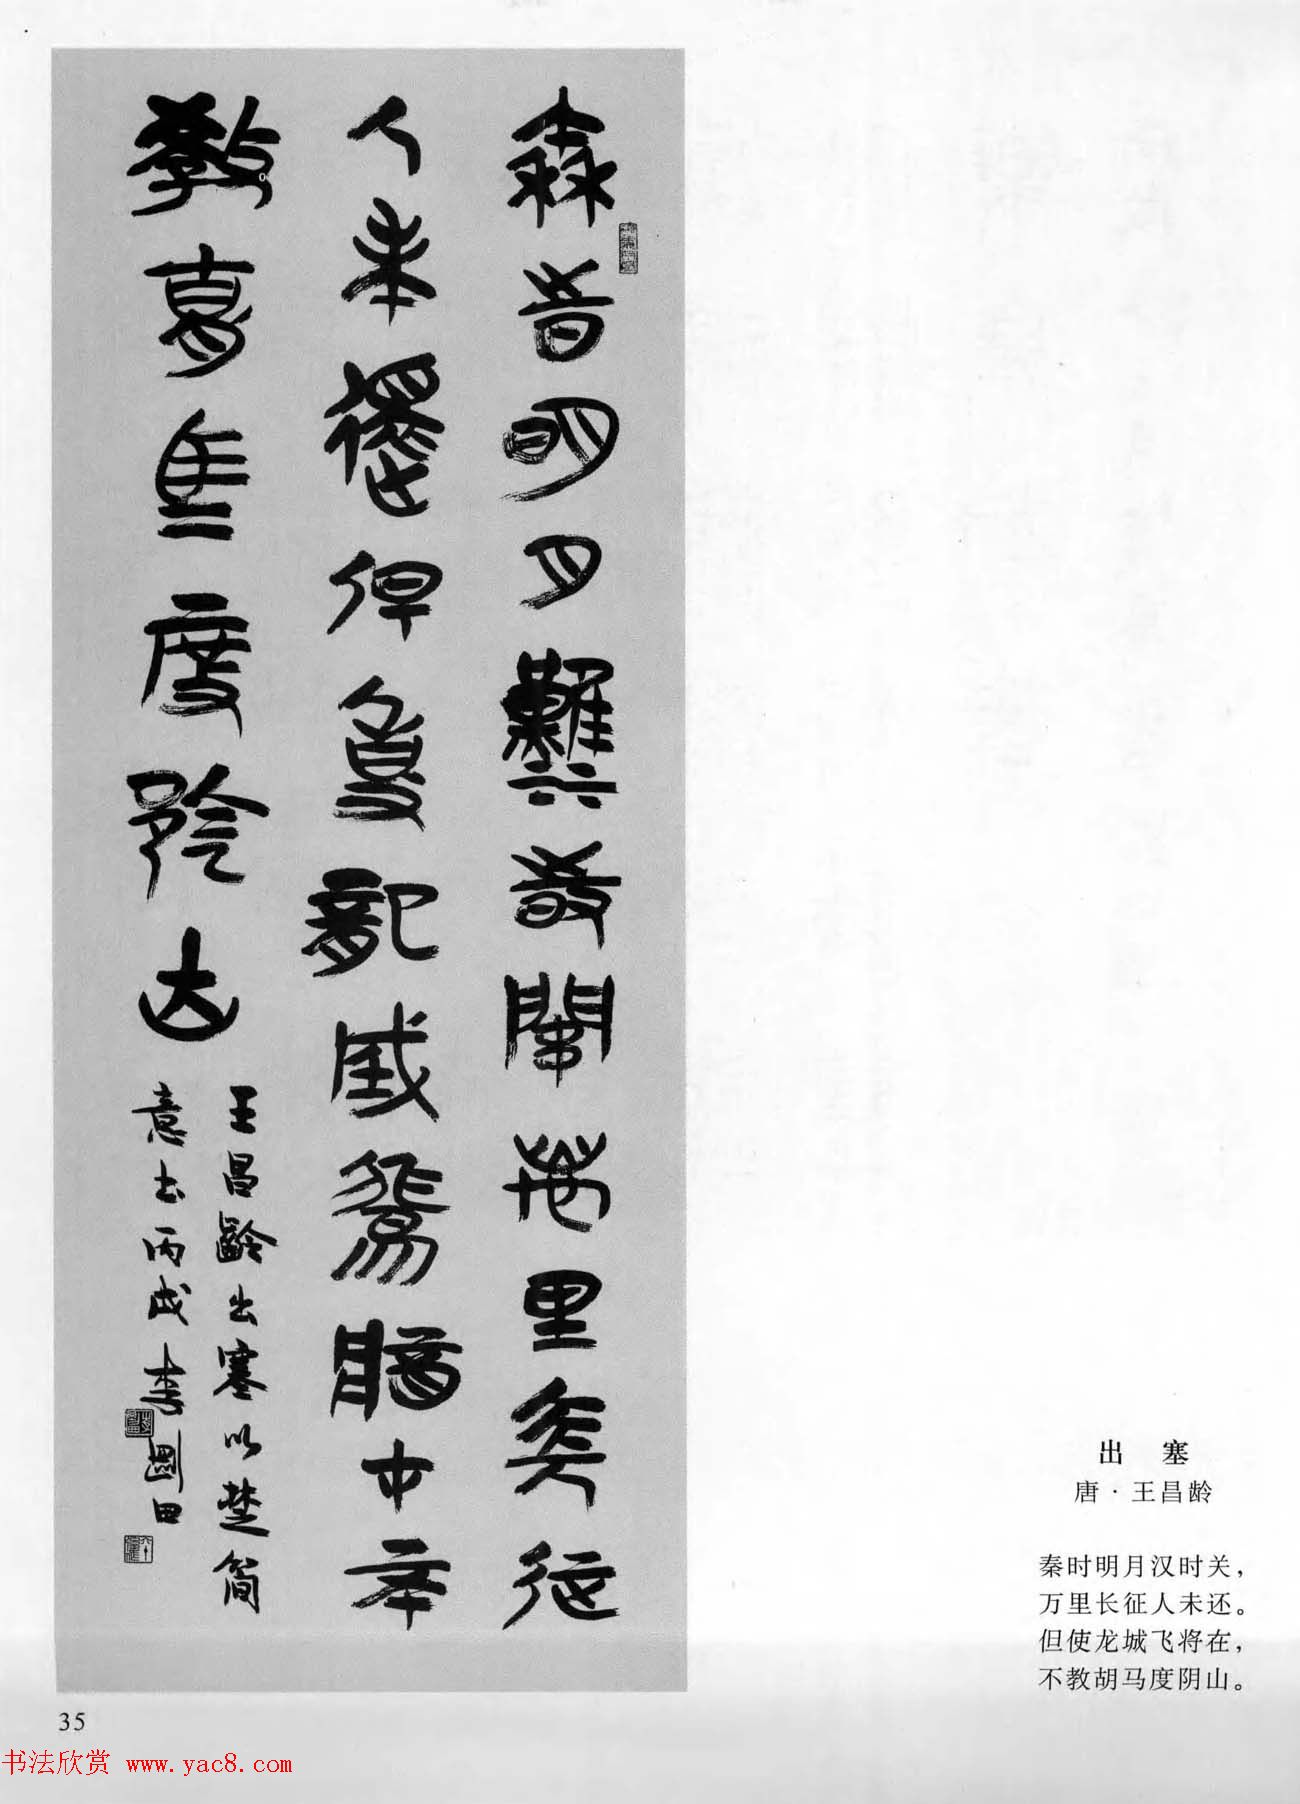 秦時明月難時關萬里長征
人未還但使龍城飛將才不
教胡馬度陰山
王昌齡出塞以楚簡
意書丙戌李國田
出 塞
唐·王昌龄
秦时明月汉时关，
万里长征人未还。
但使龙城飞将在，
不教胡马度阴山。
35
书法欣赏 www.yac8.com